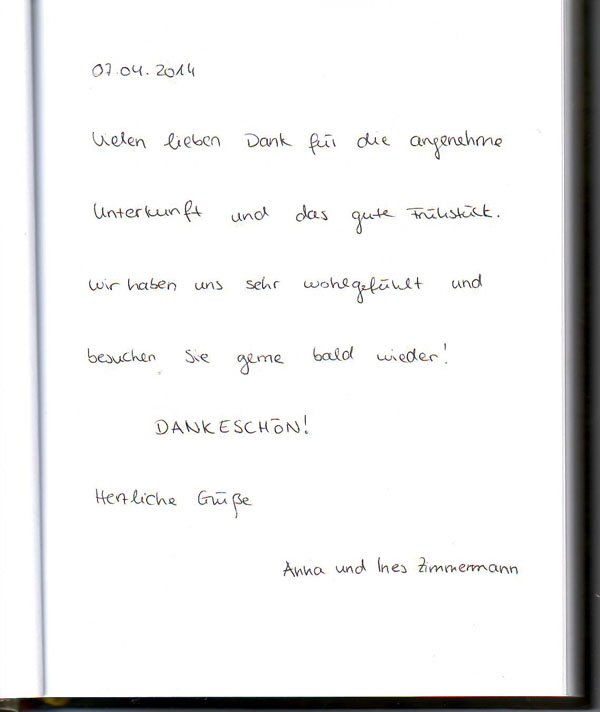 07.04.2014
Vielen lieben Dank für die angenehme
Unterkunft und das gute Frühstück.
Wir haben uns sehr wohlgefühlt und
besuchen Sie gerne bald wieder!
DANKESCHÖN!
Herzliche Grüße
Anna und Ines Zimmermann